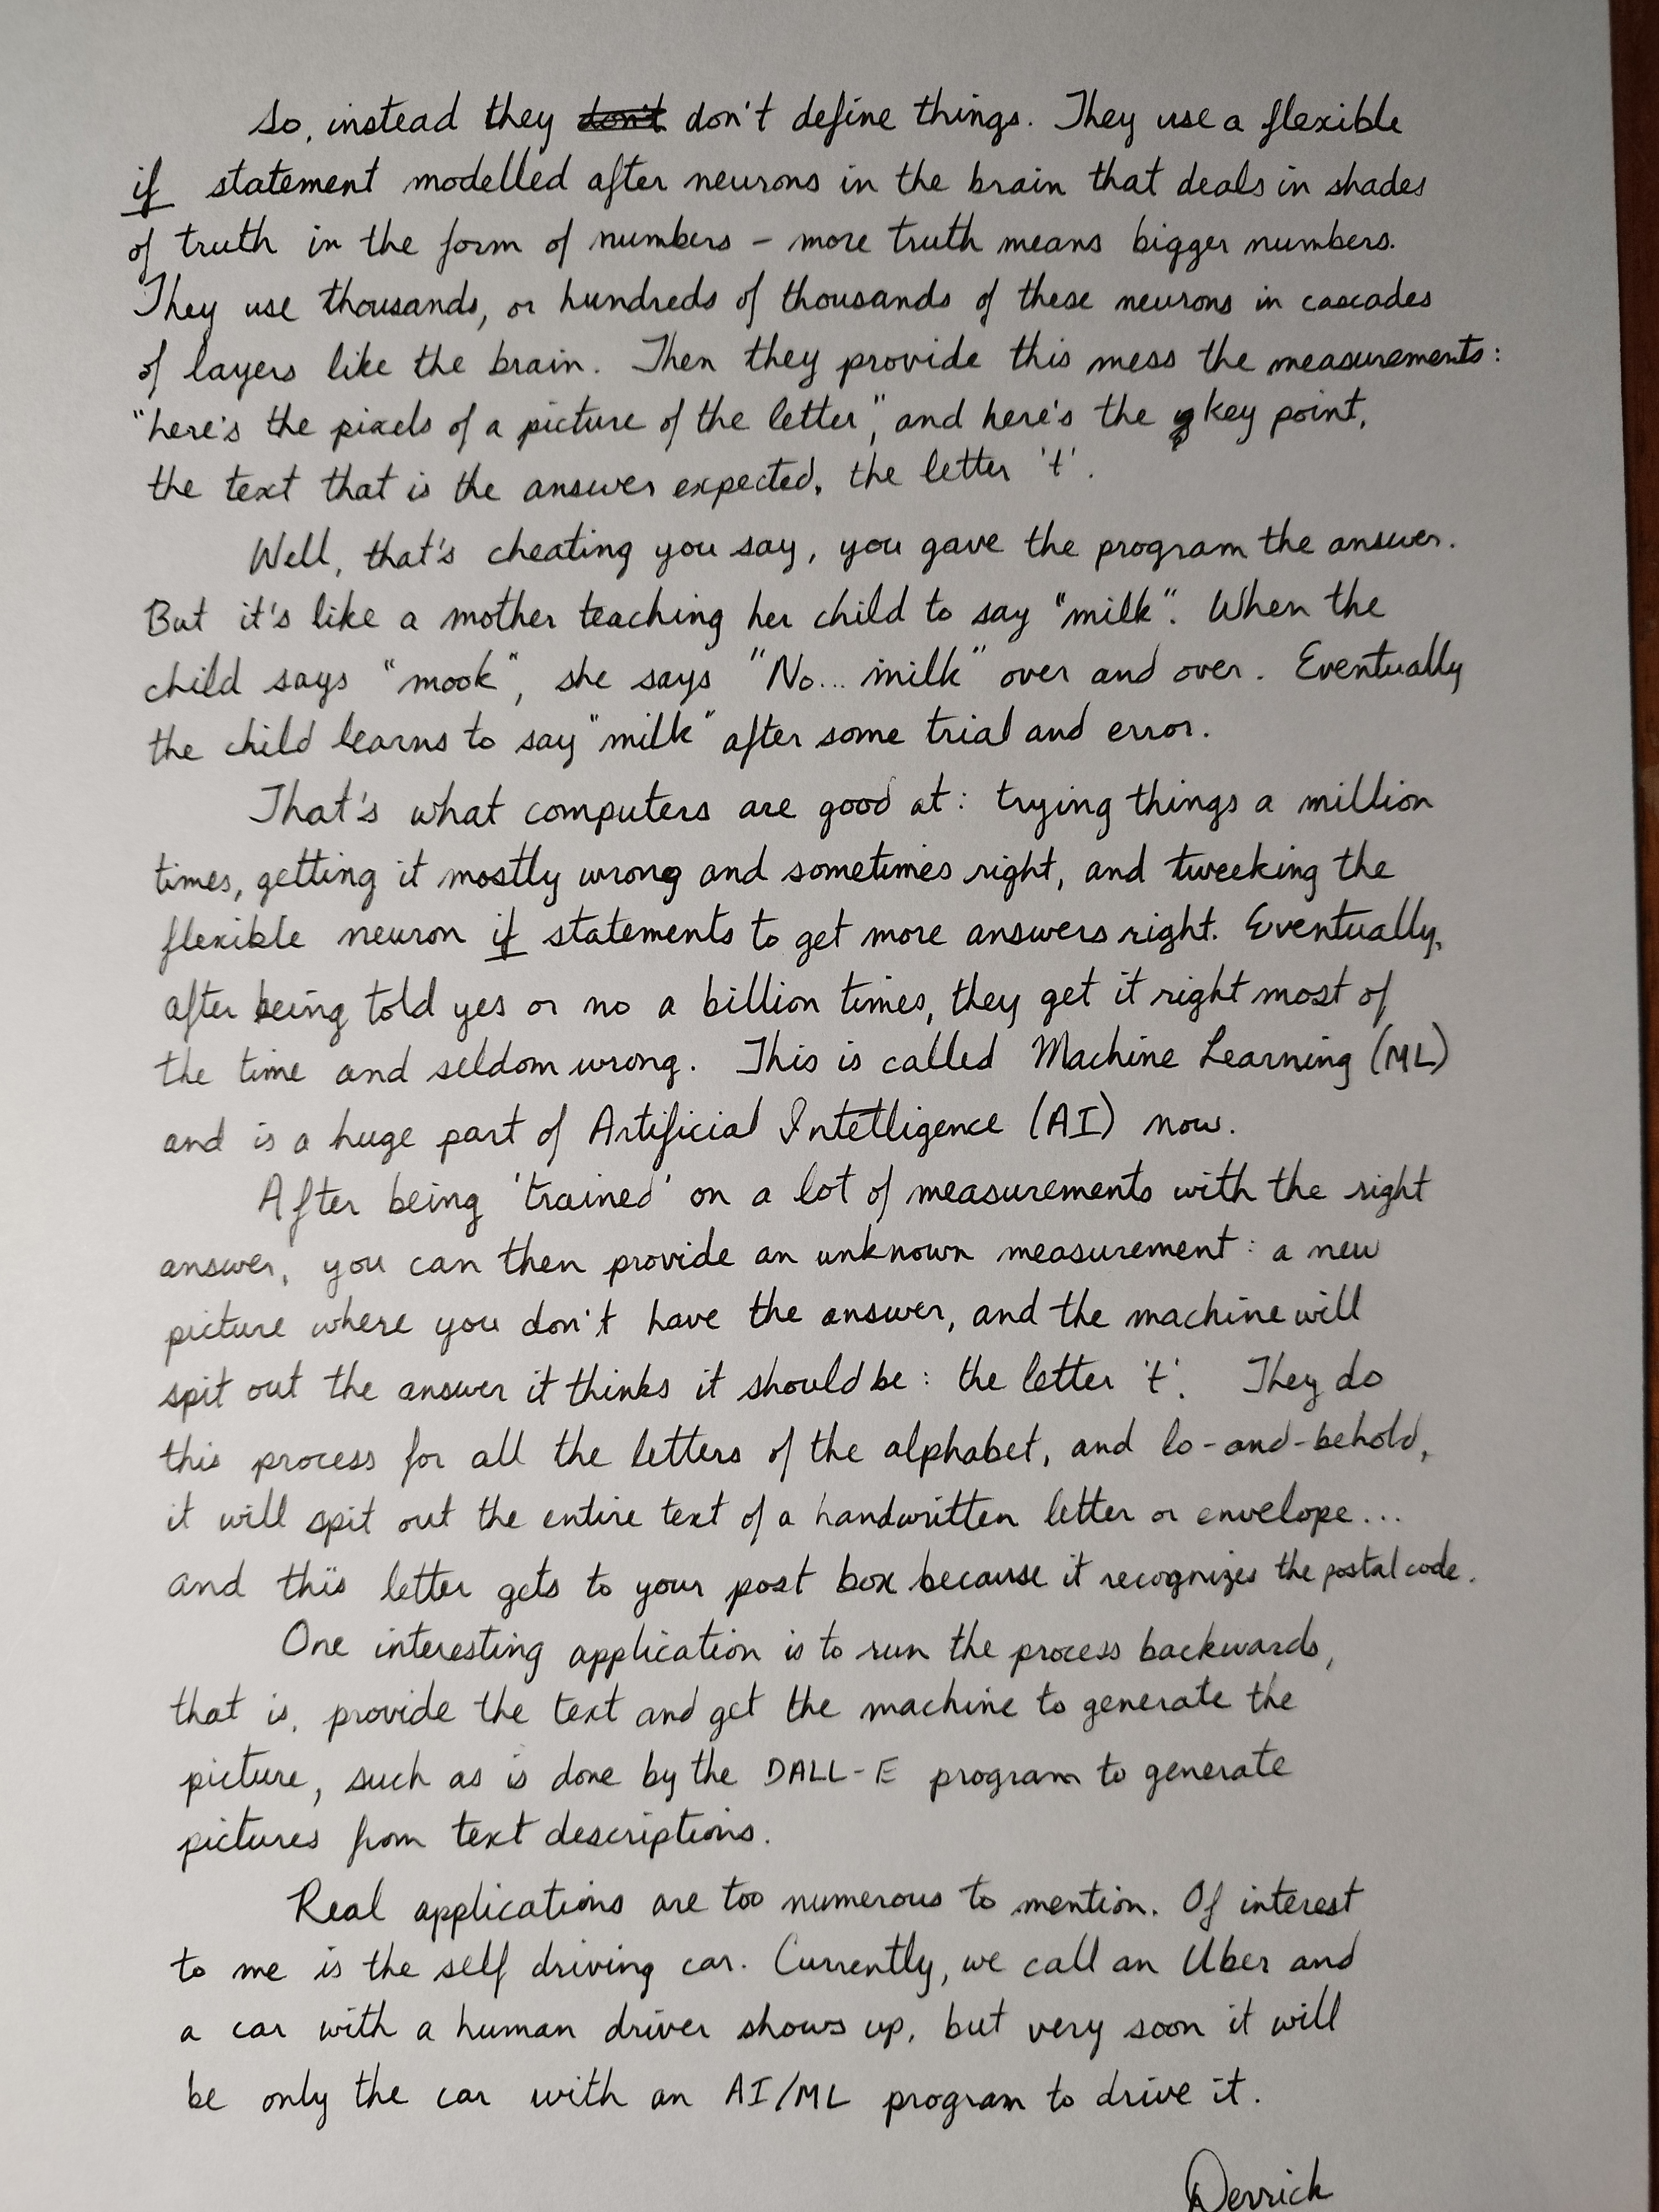 So, instead they don't don't define things. They use a flexible
if statement modelled after neurons in the brain that deals in shades
of truth in the form of numbers – more truth means bigger numbers.
They use thousands, or hundreds of thousands of these neurons in cascades
of layers like the brain. Then they provide this mess the measurements:
"here's the pixels of a picture of the letter", and here's the key point,
the text that is the answer expected, the letter 't'.
Well, that's cheating you say, you gave the program the answer.
But it's like a mother teaching her child to say "milk". When the
child says "mook", she says "No... milk" over and over. Eventually
the child learns to say "milk" after some trial and error.
That's what computers are good at: trying things a million
times, getting it mostly wrong and sometimes right, and tweeking the
flexible neuron if statements to get more answers right. Eventually,
after being told yes or no a billion times, they get it right most of
the time and seldom wrong. This is called Machine Learning (ML)
and is a huge part of Artificial Intelligence (AI) now.
After being 'trained' on a lot of measurements with the right
answer, you can then provide an unknown measurement: a new
picture where you don't have the answer, and the machine will
spit out the answer it thinks it should be: the letter 't'. They do
this process for all the letters of the alphabet, and lo-and-behold,
it will spit out the entire text of a handwritten letter or envelope...
and this letter gets to your post box because it recognizes the postal code.
One interesting application is to run the process backwards,
that is, provide the text and get the machine to generate the
picture, such as is done by the DALL-E program to generate
pictures from text descriptions.
Real applications are too numerous to mention. Of interest
to me is the self driving car. Currently, we call an Uber and
a car with a human driver shows up, but very soon it will
be only the car with an AI/ML program to drive it.
Derrick